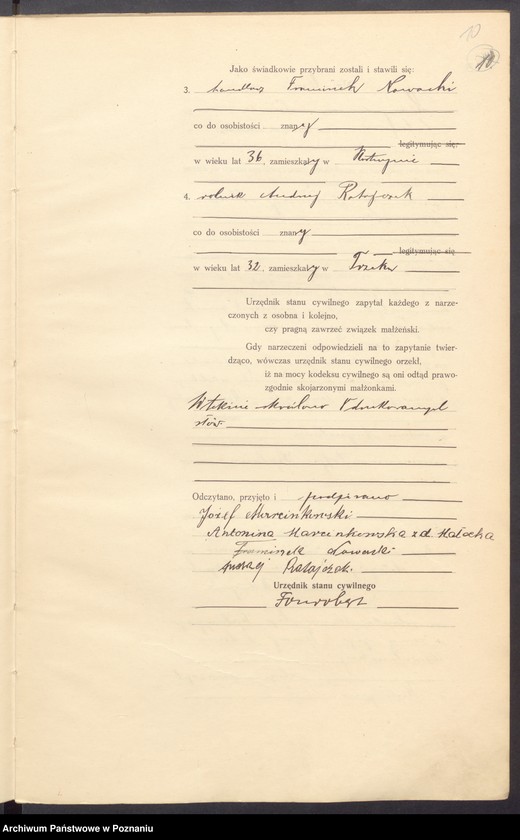 10
Jako świadkowie przybrani zostali i stawili się:
3. handlarz Franciszek Nowacki
co do osobistości znany
legitymując się:
w wieku lat 36, zamieszkały w
4. rolnik Andrzej Ratajczak
co do osobistości znany
legitymując się
w wieku lat 32, zamieszkały w Trzeku
Urzędnik stanu cywilnego zapytał każdego z narze-
czonych z osobna i kolejno,
czy pragną zawrzeć związek małżeński.
Gdy narzeczeni odpowiedzieli na to zapytanie twier-
dząco, wówczas urzędnik stanu cywilnego orzekł,
iż na mocy kodeksu cywilnego są oni odtąd prawo-
zgodnie skojarzonymi małżonkami.
W tekście skreślono 7 drukowanych
słów
Odczytano, przyjęto i podpisano
Józef Marcinkowski
Antonina Marcinkowska z d. Małocha
Franciszek Nowacki
Andrzej Ratajczak.
Urzędnik stanu cywilnego
Archiwum Państwowe w Poznaniu